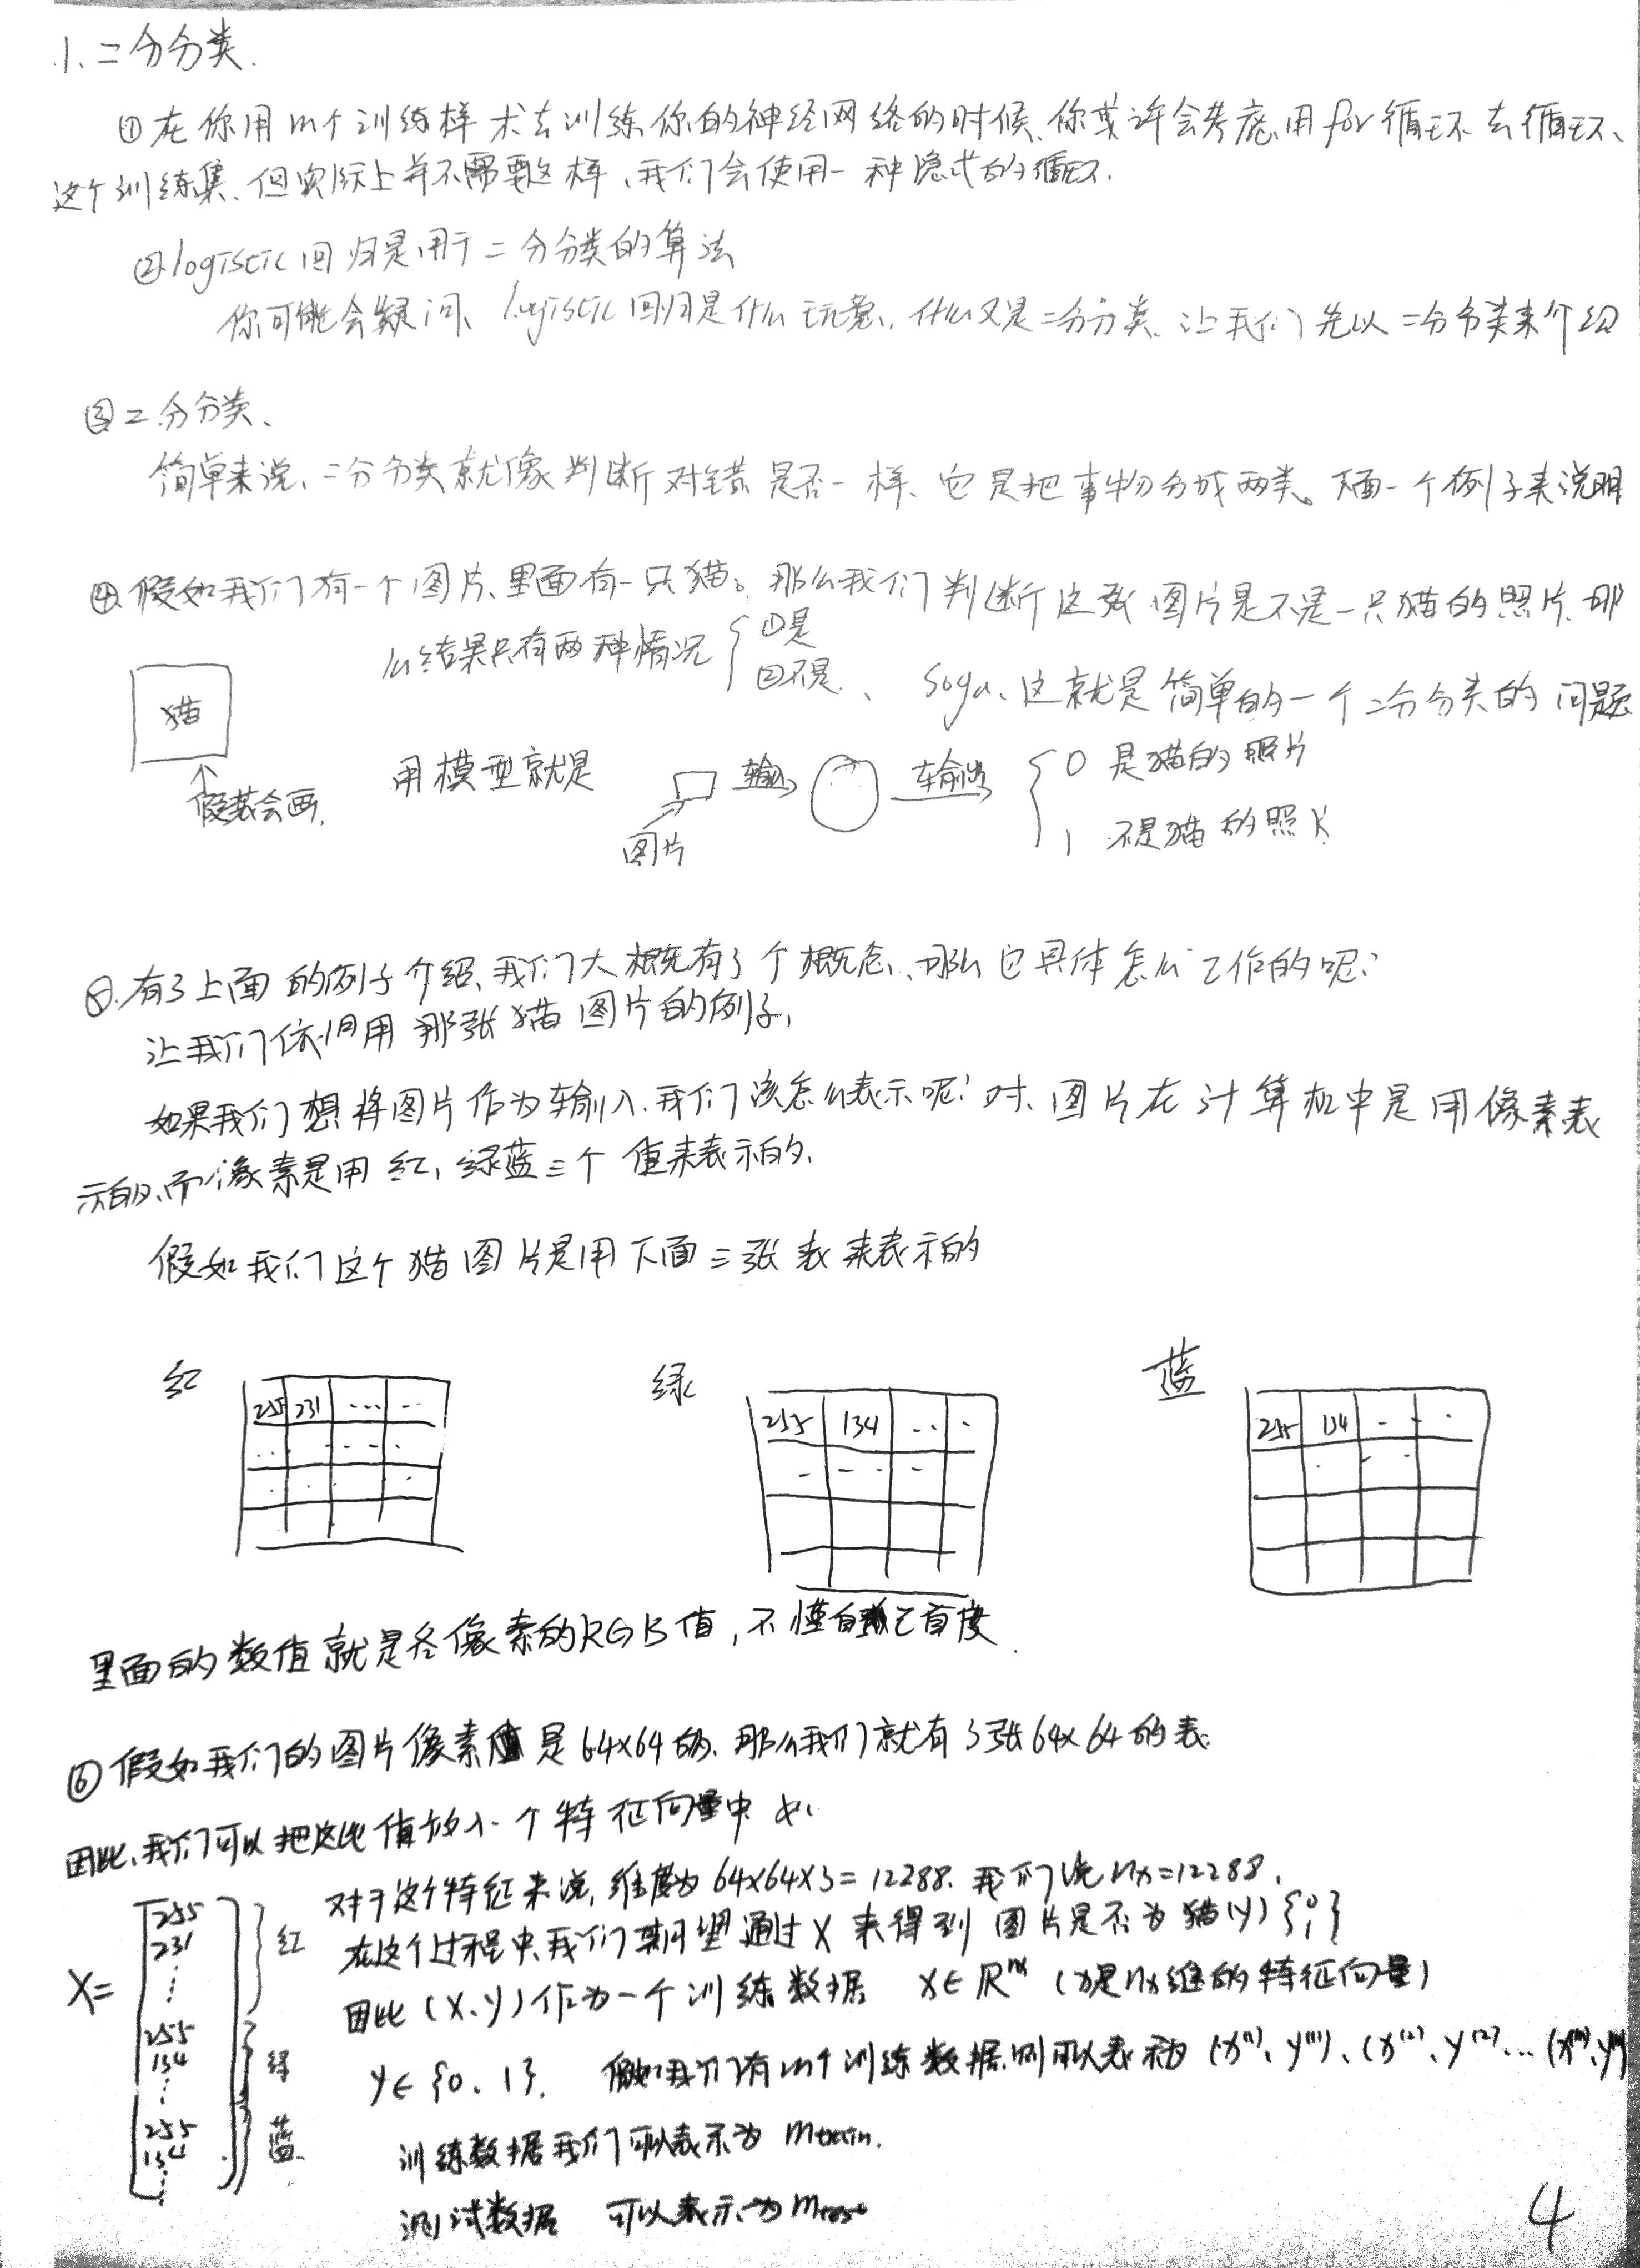 1、二分分类.
①在你用m个训练样术去训练你的神经网络的时候、你或许会考虑用for循环去循环、
这个训练集、但实际上并不需要这样、我们会使用一种隐式的循环.
②logistic回归是用于二分分类的算法
你可能会疑问、logistic回归是什么玩意、什么又是二分分类、让我们先以二分分类来介绍
③二分分类、
简单来说、二分分类就像判断对错是否一样、它是把事物分成两类。下面一个例子来说明
④假如我们有一个图片、里面有一只猫。那么我们判断这张图片是不是一只猫的照片、那
么结果只有两种情况 ①是
②不是、 soga、这就是简单的一个二分分类的问题
猫
假装会画.
用模型就是 图片 输入 输出 0 是猫的照片
1 不是猫的照片
⑤.有了上面的例子介绍、我们大概有了个概念、那么它具体怎么工作的呢?
让我们依旧用那张猫图片的例子,
如果我们想将图片作为输入、我们该怎么表示呢?对、图片在计算机中是用像素表
示的、而像素是用红,绿蓝三个值来表示的.
假如我们这个猫图片是用下面三张表来表示的
红 绿 蓝
255 231 ... ..
255 134 .. .
255 134 - - .
里面的数值就是各像素的RGB值,不懂自己百度.
⑥假如我们的图片像素值是64×64的、那么我们就有3张64×64的表
因此、我们可以把这些值放入一个特征向量中
X= 255 231 ⋮ 红
255 134 ⋮ 绿
255 134 ⋮ 蓝
对于这个特征来说,维度为64×64×3=12288. 我们说nx=12288.
在这个过程中、我们期望通过X来得到图片是否为猫(y){0,1}
因此(X、y)作为一个训练数据 X∈R^nx (x是nx维的特征向量)
y∈{0、1}. 假如我们有m个训练数据、则可以表示为(x⁽¹⁾、y⁽¹⁾)、(x⁽²⁾、y⁽²⁾... (x⁽ᵐ⁾、y⁽ᵐ⁾)
训练数据我们可以表示为mtrain.
测试数据 可以表示为mtest
4